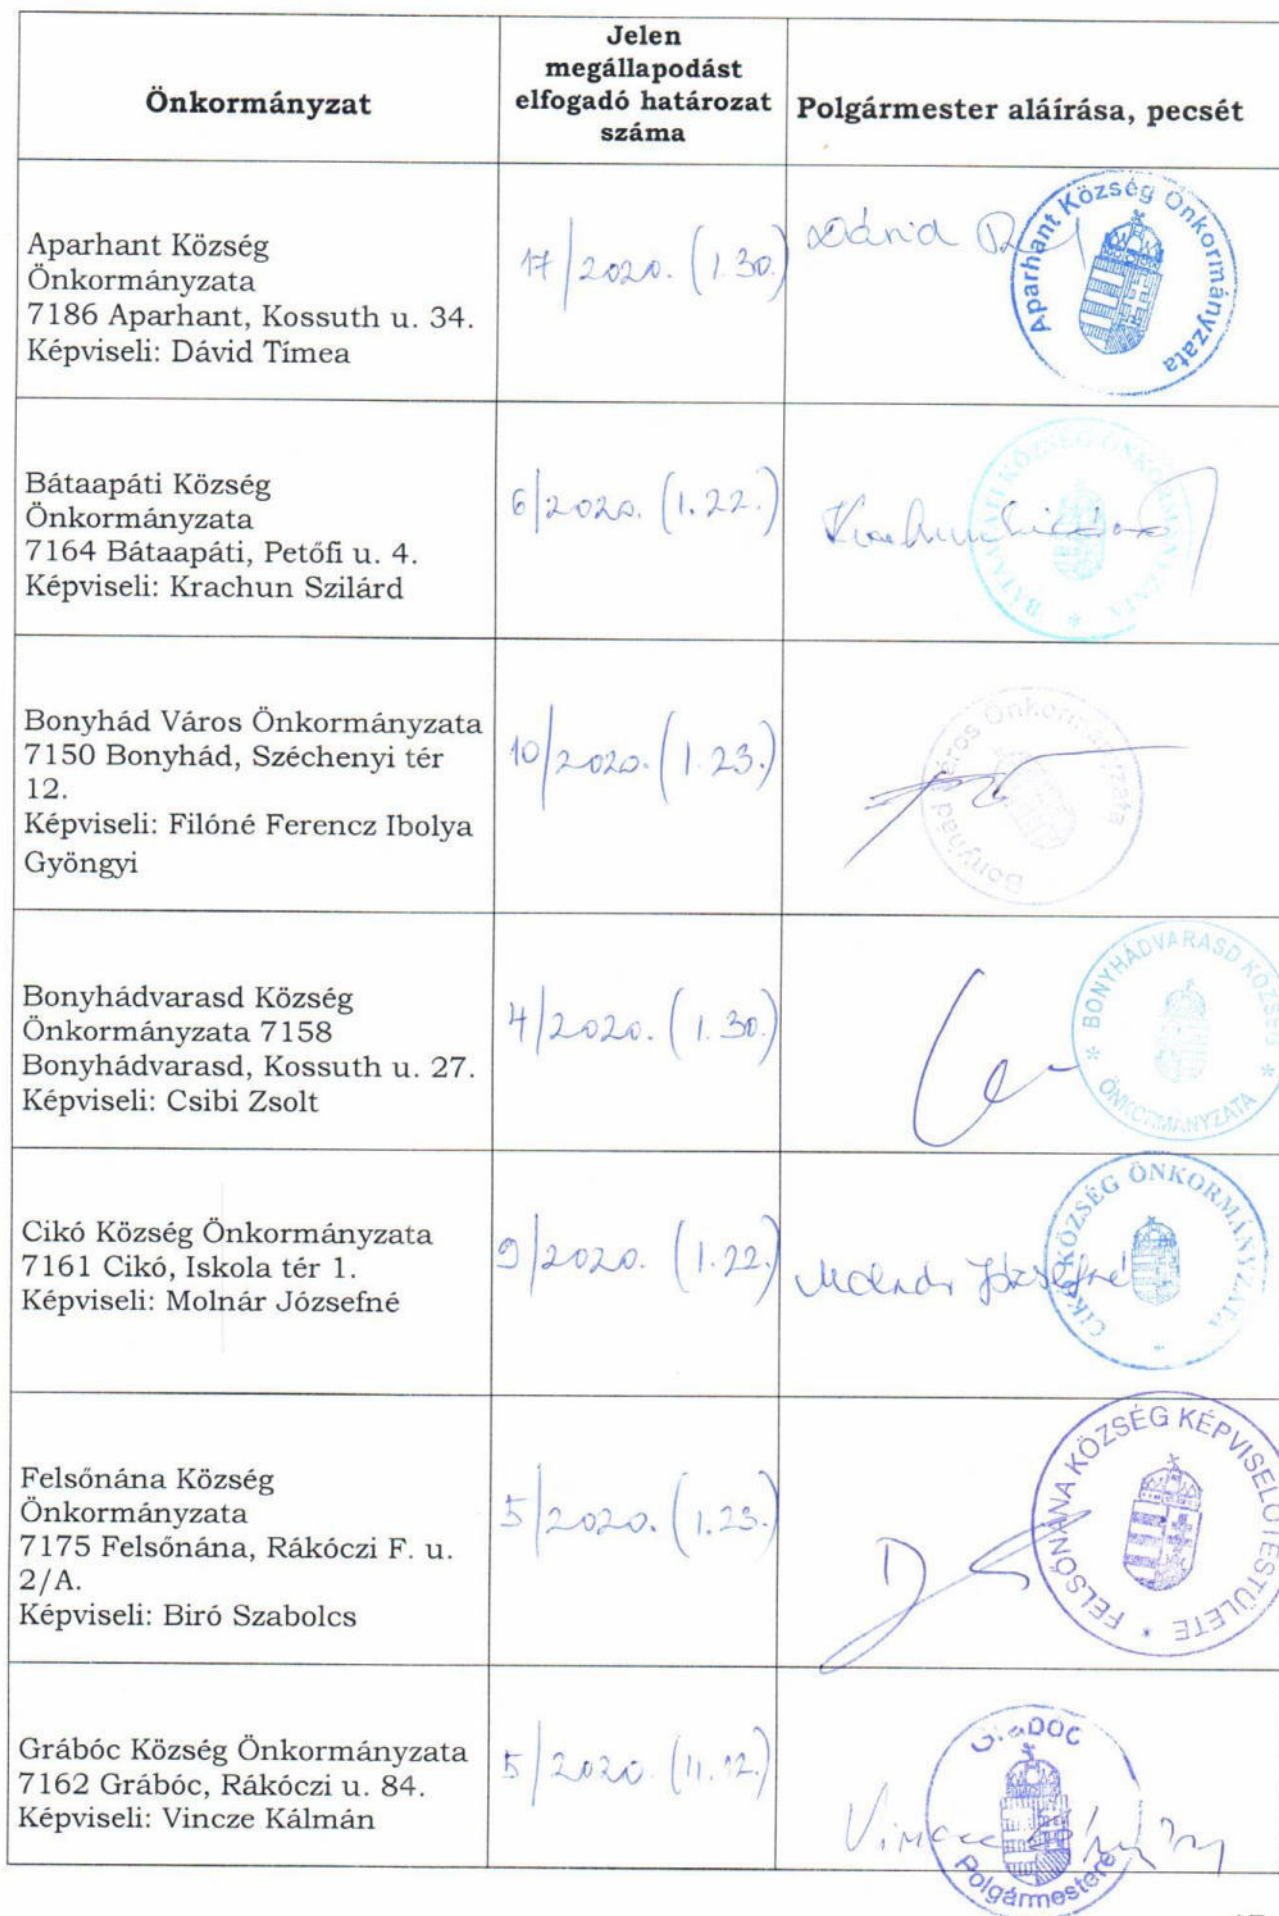 Önkormányzat
Jelen
megállapodást
elfogadó határozat
száma
Polgármester aláírása, pecsét
Aparhant Község
Önkormányzata
7186 Aparhant, Kossuth u. 34.
Képviseli: Dávid Tímea
17/2020. (1.30.)
Dávid
Aparhant Község Önkormányzata
Bátaapáti Község
Önkormányzata
7164 Bátaapáti, Petőfi u. 4.
Képviseli: Krachun Szilárd
6/2020. (1.22.)
BÁTAAPÁTI KÖZSÉG ÖNKORMÁNYZATA *
Bonyhád Város Önkormányzata
7150 Bonyhád, Széchenyi tér
12.
Képviseli: Filóné Ferencz Ibolya
Gyöngyi
10/2020. (1.23.)
Bonyhád Város Önkormányzata
Bonyhádvarasd Község
Önkormányzata 7158
Bonyhádvarasd, Kossuth u. 27.
Képviseli: Csibi Zsolt
4/2020. (1.30.)
* BONYHÁDVARASD KÖZSÉG *
ÖNKORMÁNYZATA
Cikó Község Önkormányzata
7161 Cikó, Iskola tér 1.
Képviseli: Molnár Józsefné
9/2020. (1.22.)
Molnár Józsefné
CIKÓ KÖZSÉG ÖNKORMÁNYZATA *
Felsőnána Község
Önkormányzata
7175 Felsőnána, Rákóczi F. u.
2/A.
Képviseli: Biró Szabolcs
5/2020. (1.23.)
FELSŐNÁNA KÖZSÉG KÉPVISELŐTESTÜLETE *
Grábóc Község Önkormányzata
7162 Grábóc, Rákóczi u. 84.
Képviseli: Vincze Kálmán
5/2020. (11.12.)
Vincze Kálmán
Polgármestere